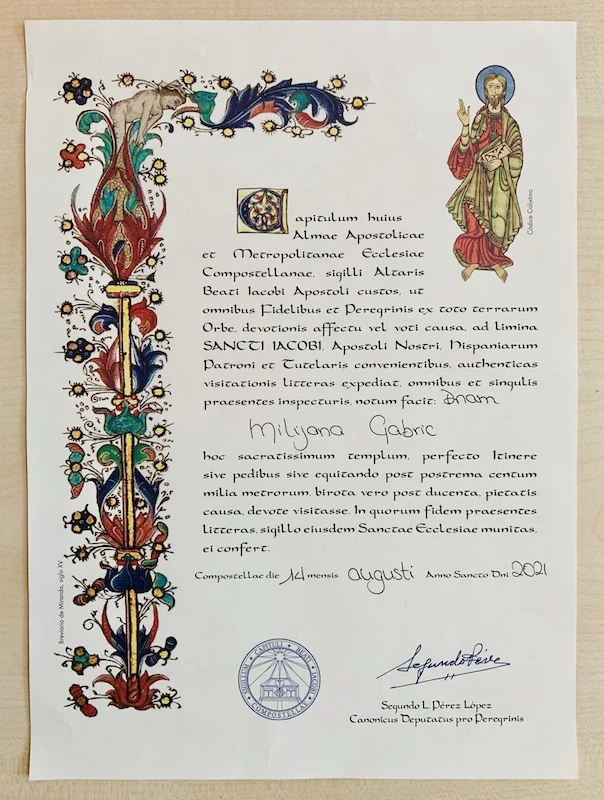 Capitulum huius
Almae Apostolicae
et Metropolitanae Ecclesiae
Compostellanae, sigilli Altaris
Beati Iacobi Apostoli custos, ut
omnibus Fidelibus et Peregrinis ex toto terrarum
Orbe, devotionis affectu vel voti causa, ad limina
SANCTI IACOBI, Apostoli Nostri, Hispaniarum
Patroni et Tutelaris convenientibus, authenticas
visitationis litteras expediat, omnibus et singulis
praesentes inspecturis, notum facit: Dnam
Milyana Gabric
hoc sacratissimum templum, perfecto Itinere
sive pedibus sive equitando post postrema centum
milia metrorum, birota vero post ducenta, pietatis
causa, devote visitasse. In quorum fidem praesentes
litteras, sigillo eiusdem Sanctae Ecclesiae munitas,
ei confert.
Compostellae die 14 mensis augusti Anno Sancto Dni 2021
Segundo L. Pérez López
Canonicus Deputatus pro Peregrinis
SIGILLUM CAPITULI BEATI IACOBI COMPOSTELLAE
Códice Calixtino
Breviario de Miranda, siglo XV